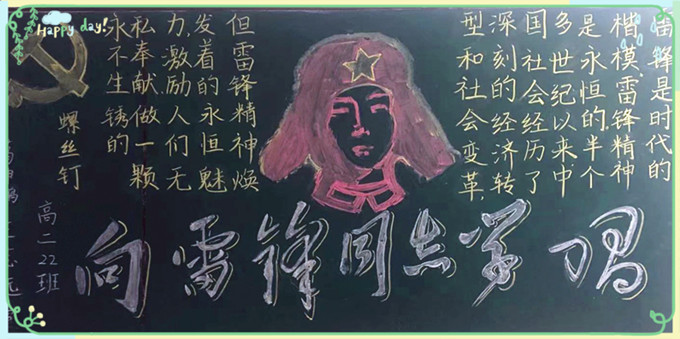 Happy day!
雷锋是时代的
楷模,雷锋精神
是永恒的,半个
多世纪以来中
国社会经历了
深刻的经济转
型和社会变革,
但雷锋精神焕
发着的永恒魅
力,激励人们无
私奉献,做一颗
永不生锈的
螺丝钉
向雷锋同志学習
高二22班